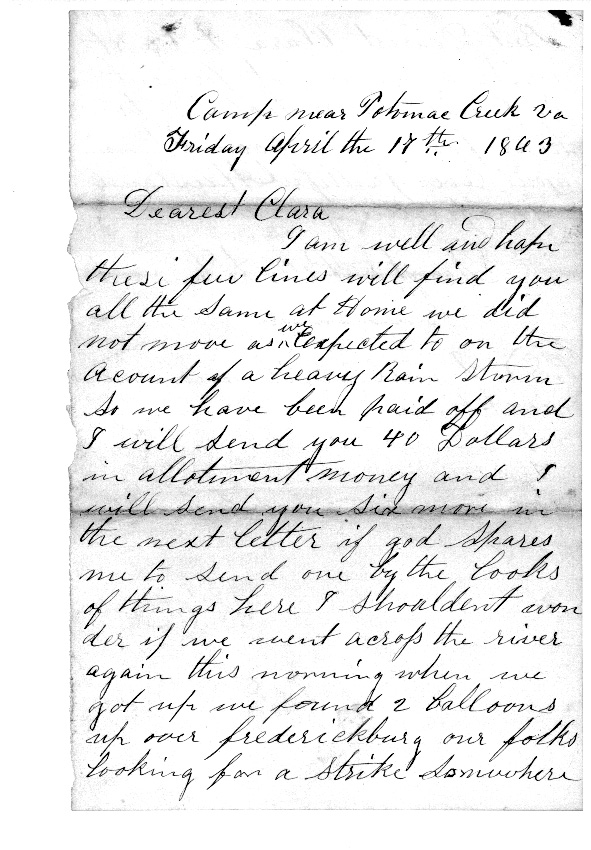 Camp near Potomac Creek Va
Friday April the 17th. 1863
Dearest Clara
I am well and hope
these few lines will find you
all the same at Home we did
not move as we expected to on the
acount of a heavy Rain Storm
So we have been paid off and
I will send you 40 Dollars
in allotment money and I
will send you six more in
the next letter if god spares
me to send one by the looks
of things here I shouldent won
der if we went across the river
again this morning when we
got up we found 2 balloons
up over frederickburg our folks
looking for a strike Somwhere